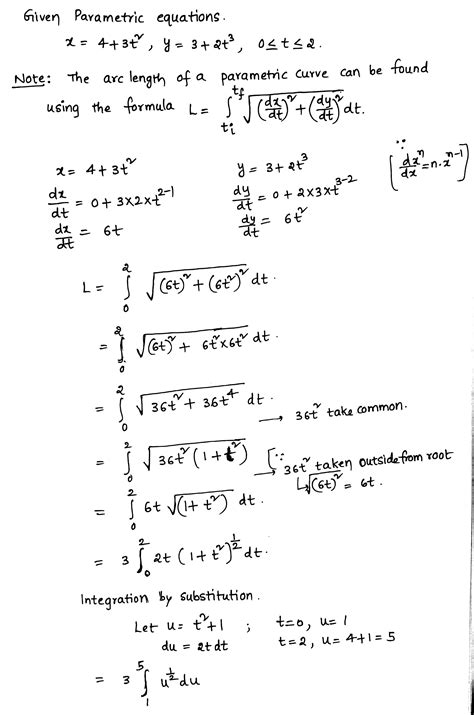 Given Parametric equations.
x = 4+3t², y = 3+2t³, 0≤t≤2.
Note: The arc length of a parametric curve can be found
using the formula L = ∫_{ti}^{tf} √((dx/dt)² + (dy/dt)²) dt.
x = 4+3t²    y = 3+2t³    [∵ dxⁿ/dx = n·xⁿ⁻¹]
dx/dt = 0+3×2×t²⁻¹    dy/dt = 0+2×3×t³⁻²
dx/dt = 6t    dy/dt = 6t²
L = ∫₀² √((6t)² + (6t²)²) dt.
= ∫₀² √((6t)² + 6t²×6t²) dt.
= ∫₀² √(36t² + 36t⁴) dt. → 36t² take common.
= ∫₀² √(36t²(1+t²)) [∵ → 36t² taken outside from root
↳ √(6t)² = 6t.
= ∫₀² 6t √(1+t²) dt.
= 3 ∫₀² 2t (1+t²)^½ dt.
Integration by substitution.
Let u = t²+1 ; t=0, u=1
du = 2t dt    t=2, u=4+1=5
= 3 ∫₁⁵ u^½ du